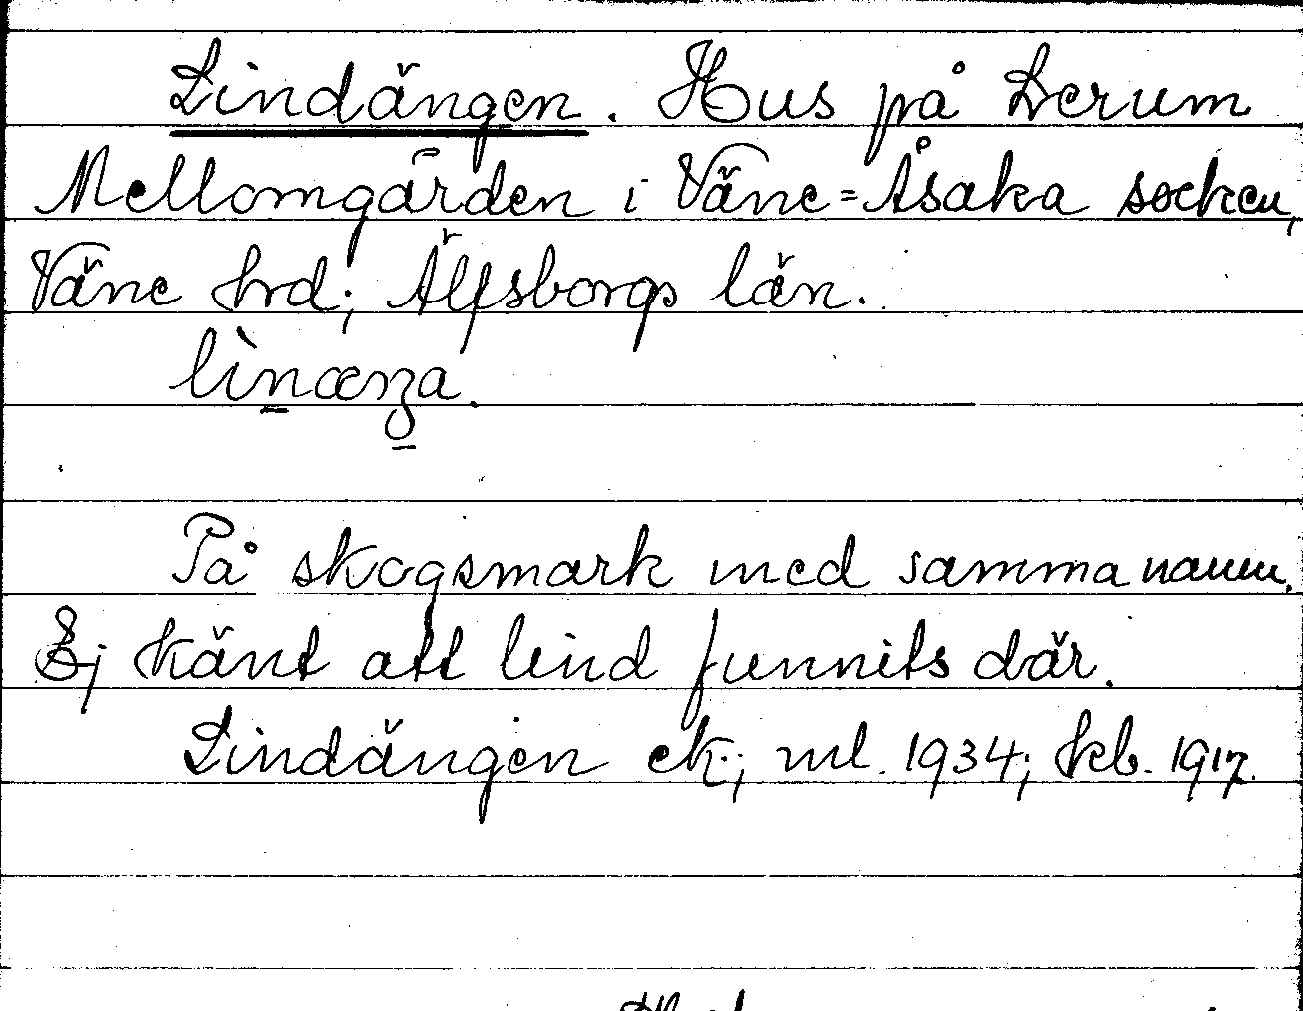 Lindängen. Hus på Lerum
Mellomgården i Väne=Åsaka socken,
Väne hrd; Älfsborgs län.
På skogsmark med samma namn.
Ej känt att lind funnits där.
Lindängen ek.; ml. 1934; kb. 1917.